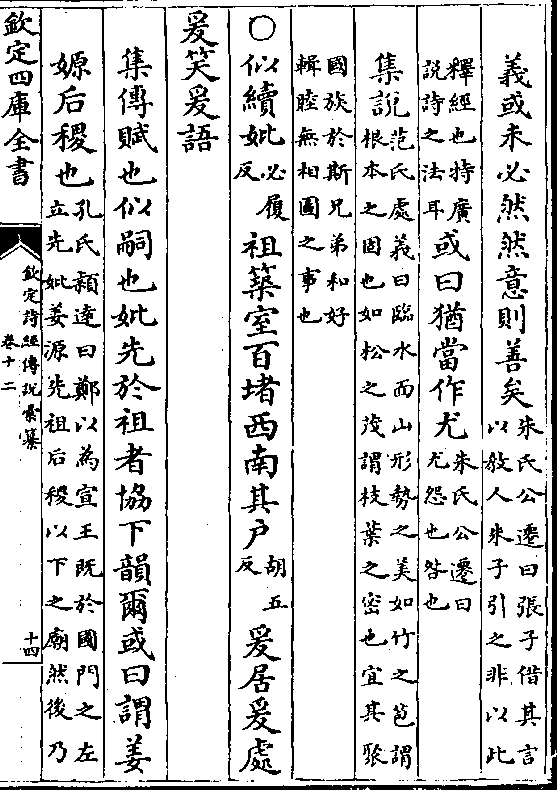 義或未必然然意則善矣朱氏公遷曰張子借其言以教人朱子引之非以此
釋經也特廣說詩之法耳或曰猶當作尤朱氏公遷曰尤怨也咎也
集說范氏處義曰臨水而山形勢之美如竹之苞謂根本之固也如松之茂謂枝葉之密也宜其聚
國族於斯兄弟和好輯睦無相圖之事也
〇似續妣必履反祖築室百堵西南其戶胡五反爰居爰處
爰笑爰語
集傳賦也似嗣也妣先於祖者協下韻爾或曰謂姜
嫄后稷也孔氏穎達曰鄭以為宣王既於國門之左立先妣姜源先祖后稷以下之廟然後乃
欽定四庫全書
欽定詩經傳說彙纂
卷十二
十四